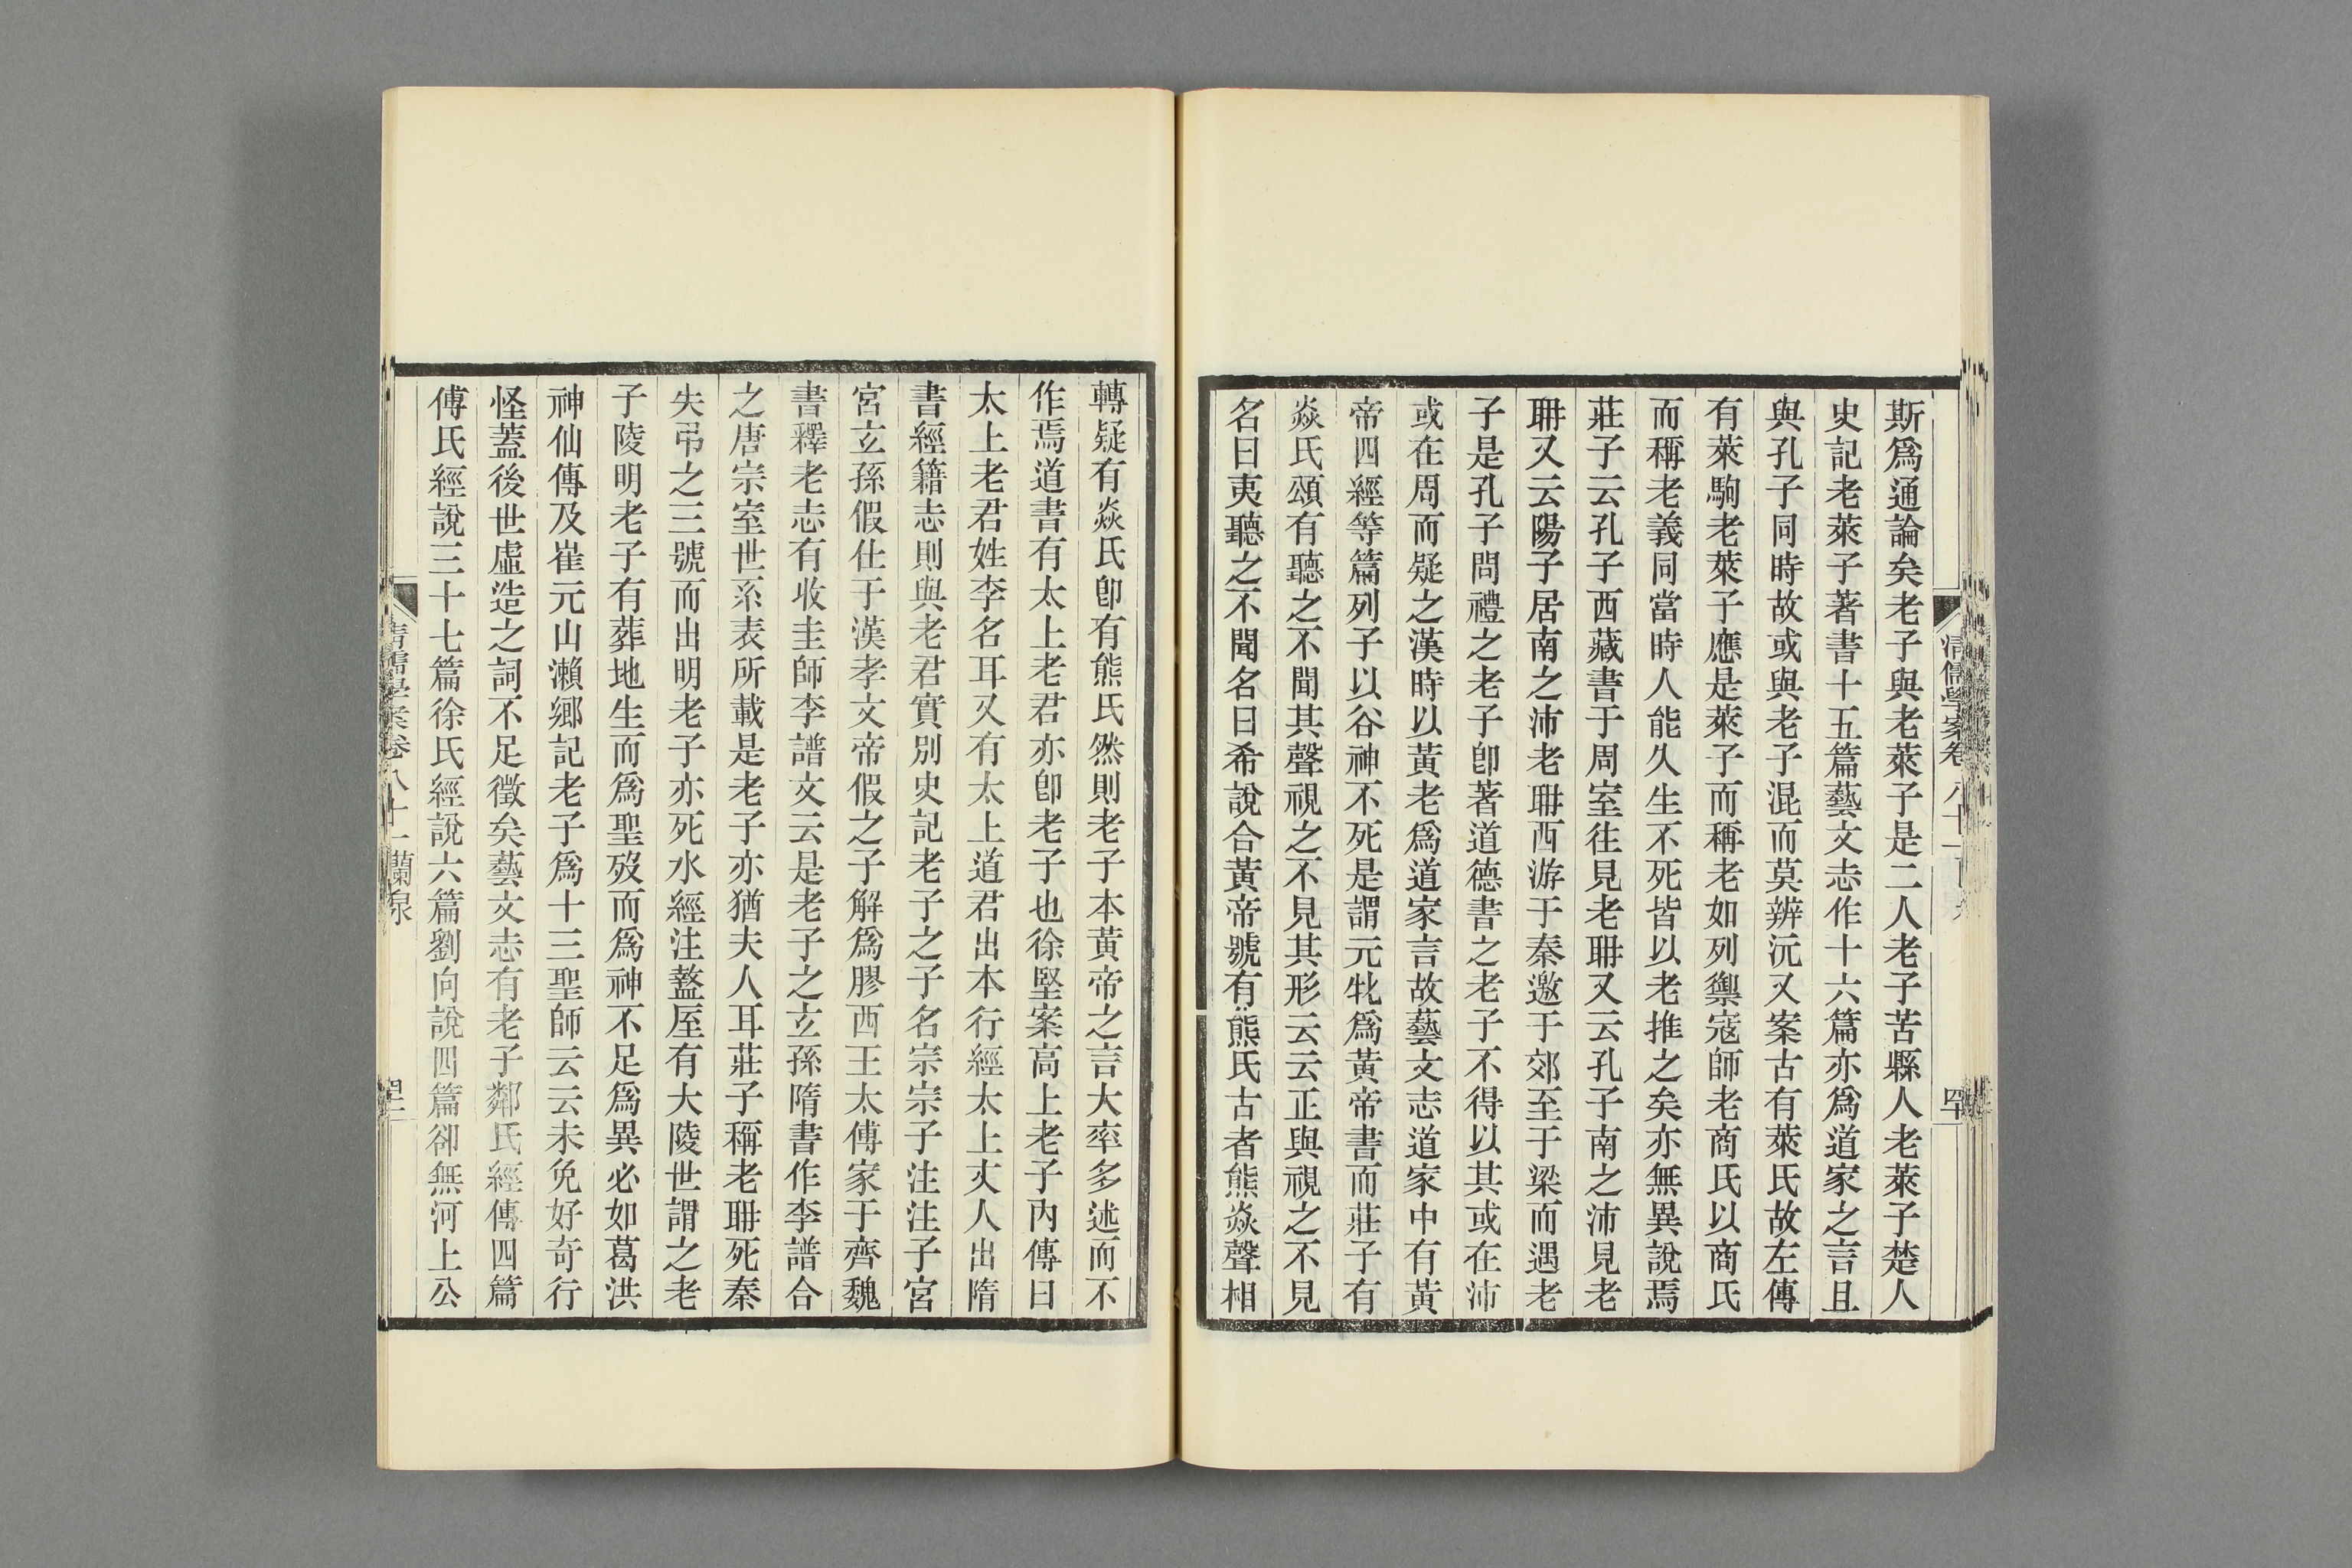 斯爲通論矣老子與老萊子是二人老子苦縣人老萊子楚人
史記老萊子著書十五篇藝文志作十六篇亦爲道家之言且
與孔子同時故或與老子混而莫辨沅又案古有萊氏故左傳
有萊駒老萊子應是萊子而稱老如列禦寇師老商氏以商氏
而稱老義同當時人能久生不死皆以老推之矣亦無異說焉
莊子云孔子西藏書于周室往見老聃又云孔子南之沛見老
聃又云陽子居南之沛老聃西游于秦邀于郊至于梁而遇老
子是孔子問禮之老子卽著道德書之老子不得以其或在沛
或在周而疑之漢時以黃老爲道家言故藝文志道家中有黃
帝四經等篇列子以谷神不死是謂元牝爲黃帝書而莊子有
焱氏頌有聽之不聞其聲視之不見其形云云正與視之不見
名曰夷聽之不聞名曰希說合黃帝號有熊氏古者熊焱聲相
清儒學案卷八十一
轉疑有焱氏卽有熊氏然則老子本黃帝之言大率多述而不
作焉道書有太上老君亦卽老子也徐堅案高上老子內傳曰
太上老君姓李名耳又有太上道君出本行經太上丈人出隋
書經籍志則與老君實別史記老子之子名宗宗子注注子宮
宮玄孫假仕于漢孝文帝假之子解爲膠西王太傅家于齊魏
書釋老志有收圭師李譜文云是老子之玄孫隋書作李譜合
之唐宗室世系表所載是老子亦猶夫人耳莊子稱老聃死秦
失弔之三號而出明老子亦死水經注盩厔有大陵世謂之老
子陵明老子有葬地生而爲聖歿而爲神不足爲異必如葛洪
神仙傳及崔元山瀨鄉記老子爲十三聖師云云未免好奇行
怪蓋後世虛造之詞不足徵矣藝文志有老子鄰氏經傳四篇
傅氏經說三十七篇徐氏經說六篇劉向說四篇卻無河上公
清儒學案卷八十一 蘭泉